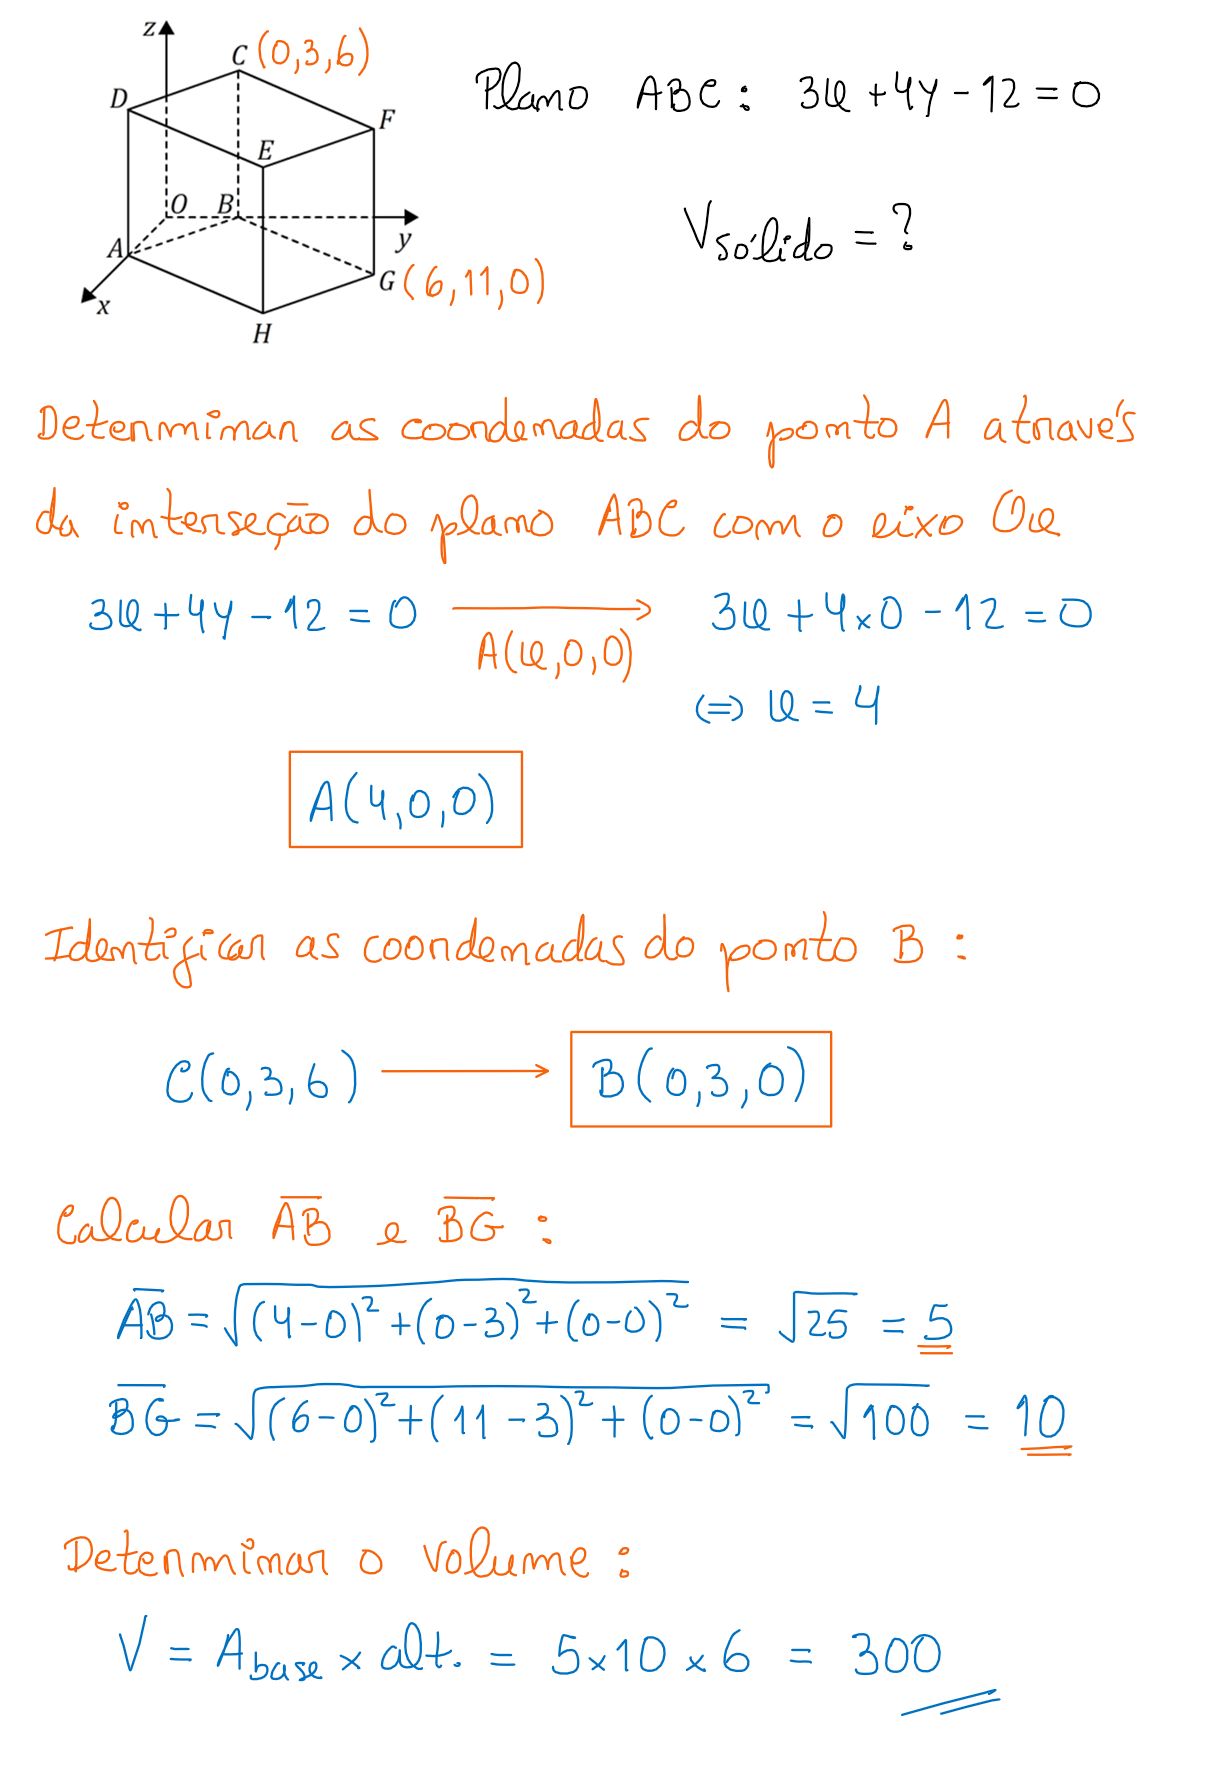 z
C (0,3,6)
D
F
E
Plano ABC: 3x + 4y - 12 = 0
O
B
y
A
G (6,11,0)
x
H
Vsólido = ?
Determinar as coordenadas do ponto A através
da interseção do plano ABC com o eixo Ox
3x + 4y - 12 = 0 ⟶ 3x + 4×0 - 12 = 0
A(x,0,0)
(=) x = 4
A(4,0,0)
Identificar as coordenadas do ponto B :
C(0,3,6) ⟶ B(0,3,0)
Calcular A̅B̅ e B̅G̅ :
A̅B̅ = √((4-0)² + (0-3)² + (0-0)²) = √25 = 5
B̅G̅ = √((6-0)² + (11-3)² + (0-0)²) = √100 = 10
Determinar o volume :
V = Abase × alt. = 5×10×6 = 300